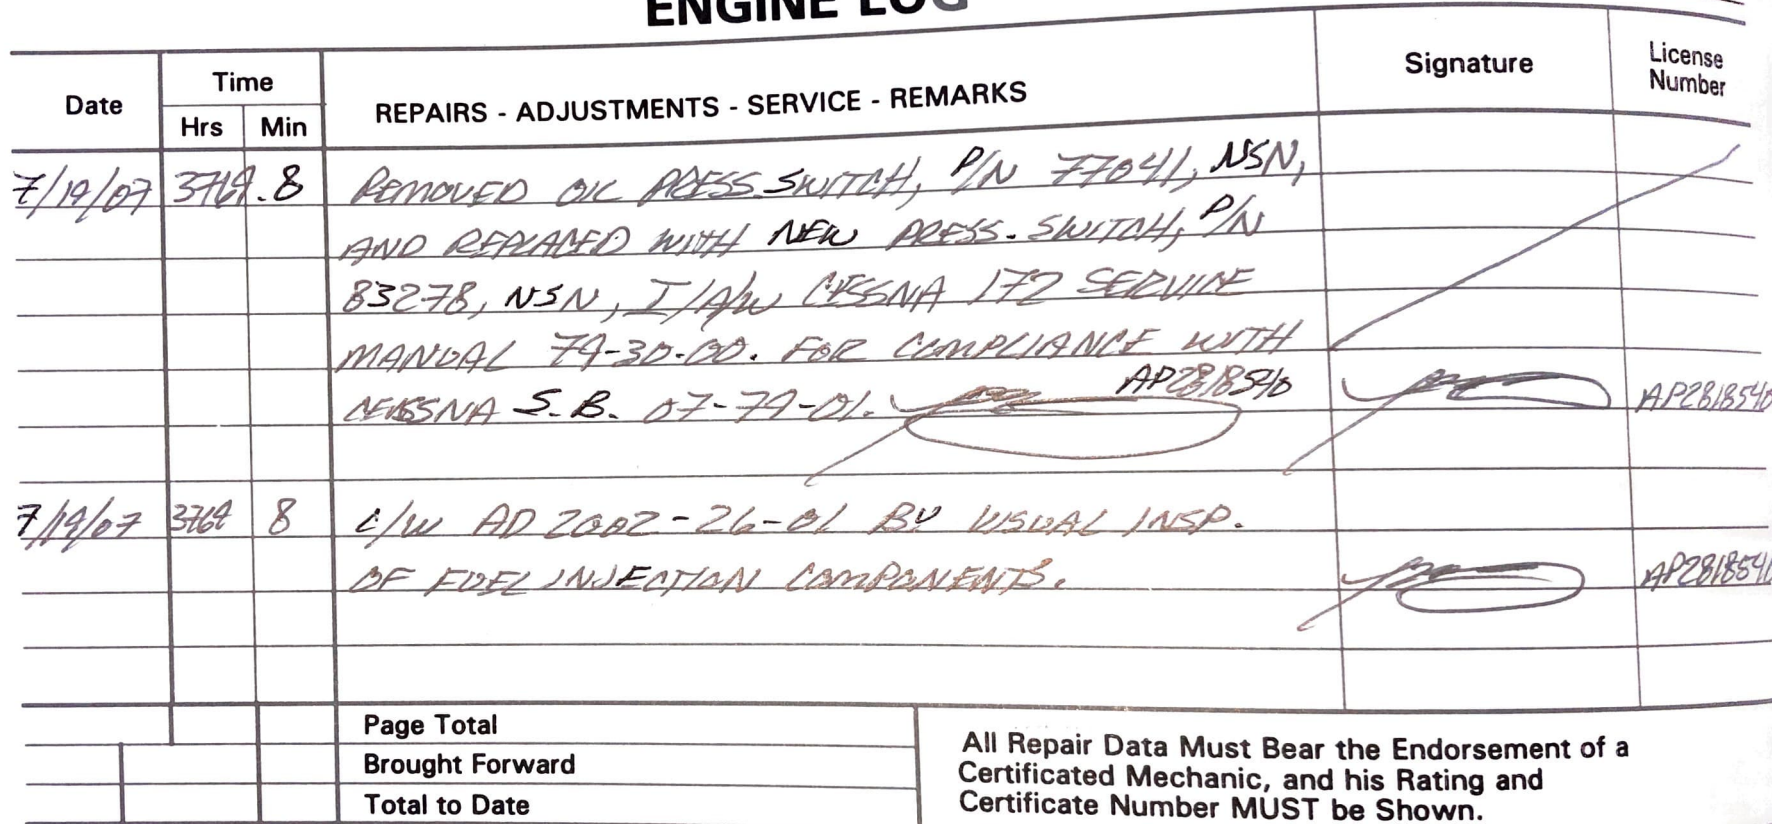 ENGINE LOG
Date
Time
Hrs
Min
REPAIRS - ADJUSTMENTS - SERVICE - REMARKS
Signature
License
Number
7/19/07 3769.8 REMOVED OIL PRESS. SWITCH, P/N 77041, NSN,
AND REPLACED WITH NEW PRESS. SWITCH, P/N
83278, NSN, I/A/W CESSNA 172 SERVICE
MANUAL 79-30-00. FOR COMPLIANCE WITH
CESSNA S.B. 07-79-01. AP2818540 AP2818540
7/19/07 3769 8 C/W AD 2002-26-01 BY VISUAL INSP.
OF FUEL INJECTION COMPONENTS. AP2818540
Page Total
Brought Forward
Total to Date
All Repair Data Must Bear the Endorsement of a
Certificated Mechanic, and his Rating and
Certificate Number MUST be Shown.